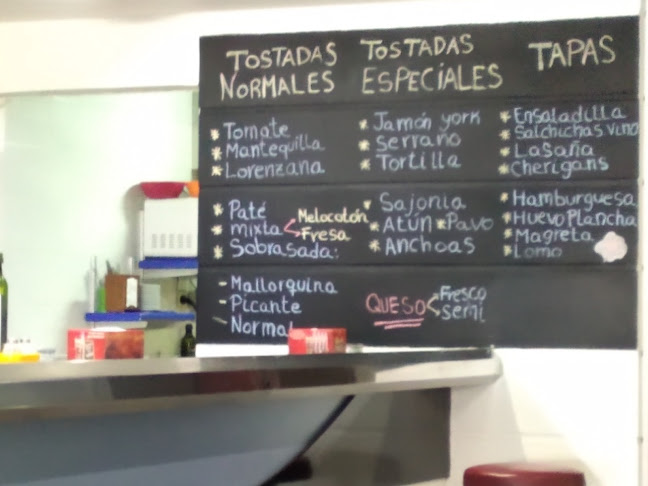 TOSTADAS NORMALES
* Tomate
* Mantequilla
* Lorenzana
* Paté
* mixta < Melocotón
Fresa
* Sobrasada:
- Mallorquina
- Picante
- Normal
TOSTADAS ESPECIALES
* Jamón york
* serrano
* Tortilla
* Sajonia
* Atún * Pavo
* Anchoas
QUESO < Fresco
semi
TAPAS
* Ensaladilla
* Salchichas vino
* Lasaña
* Cherigans
* Hamburguesa
* Huevo Plancha
* Magreta
* Lomo